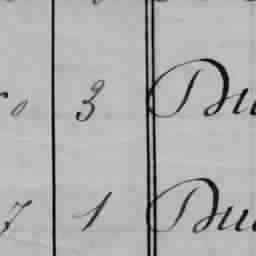 0 3 Du
7 1 Du